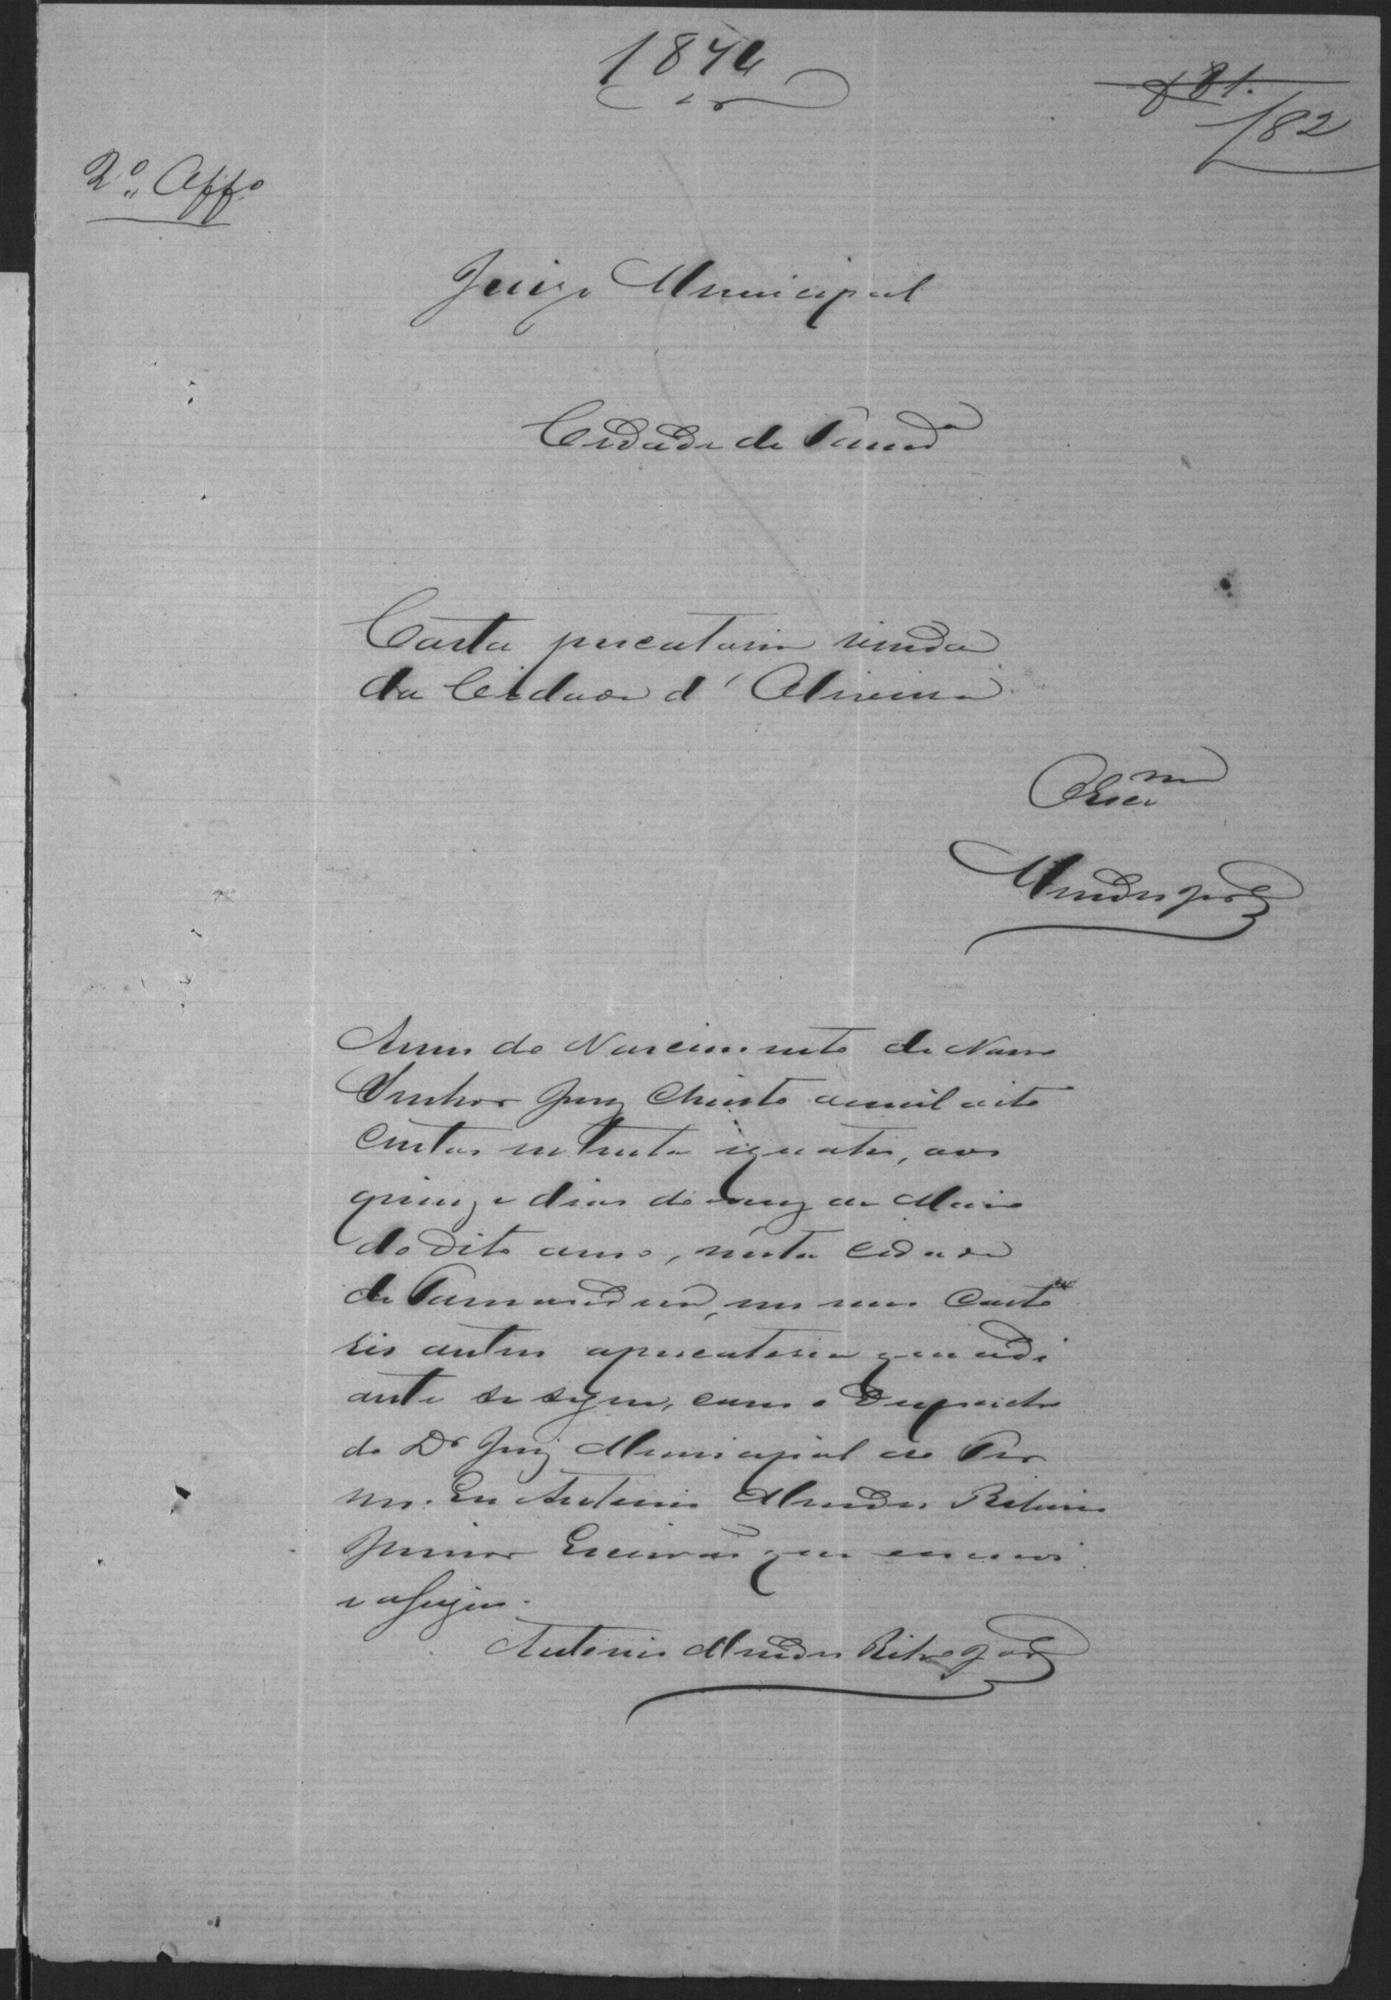 1874
f 81.
182
2º Offº
Juizo Municipal
Cidade de Tamdª
Carta precatoria vinda
da Cidade d'Oliveira
Escam
Mendes Jor
Anno do Nascimento de Nosso
Senhor Jesus Christo de mil oito
centos setenta e quatro, aos
quinze dias do mez de Maio
do dito anno, nesta Cidade
de Tamanduá, em meu Carto
rio autuei a precatoria que adi
ante se segue, com o Despacho
do Dr Juiz Municipal do Ter
mo. Eu Antonio Mendes Ribeiro
Junior Escrivão que escrevi
e assignei.
Antonio Mendes Ribro Jor